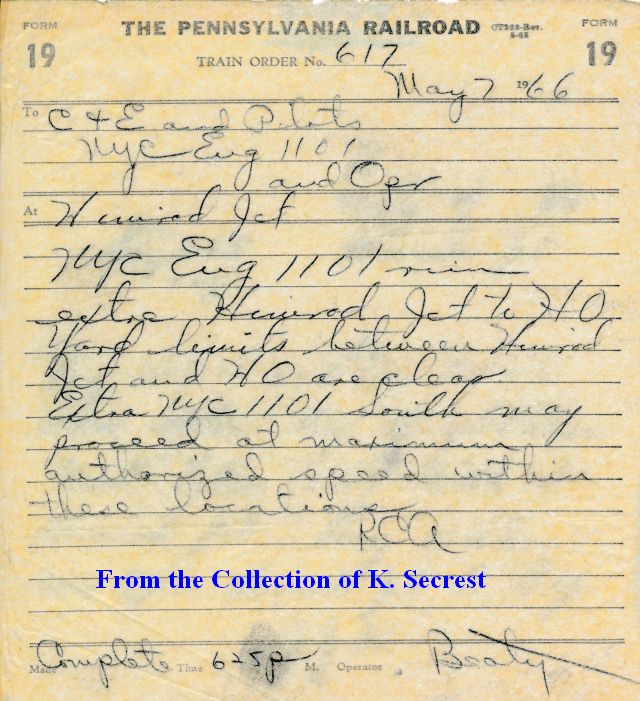 FORM 19
THE PENNSYLVANIA RAILROAD
FORM 19
TRAIN ORDER No. 617
May 7 1966
To C & E and Pilots
NYC Eng 1101
and Opr
At Himrod Jct
NYC Eng 1101 run
extra Himrod Jct to HO
Yard limits between Himrod
Jct and HO are clear.
Extra NYC 1101 South may
proceed at maximum
authorized speed within
these locations
RCA
From the Collection of K. Secrest
Made Complete Time 625p M. Operator Beaty